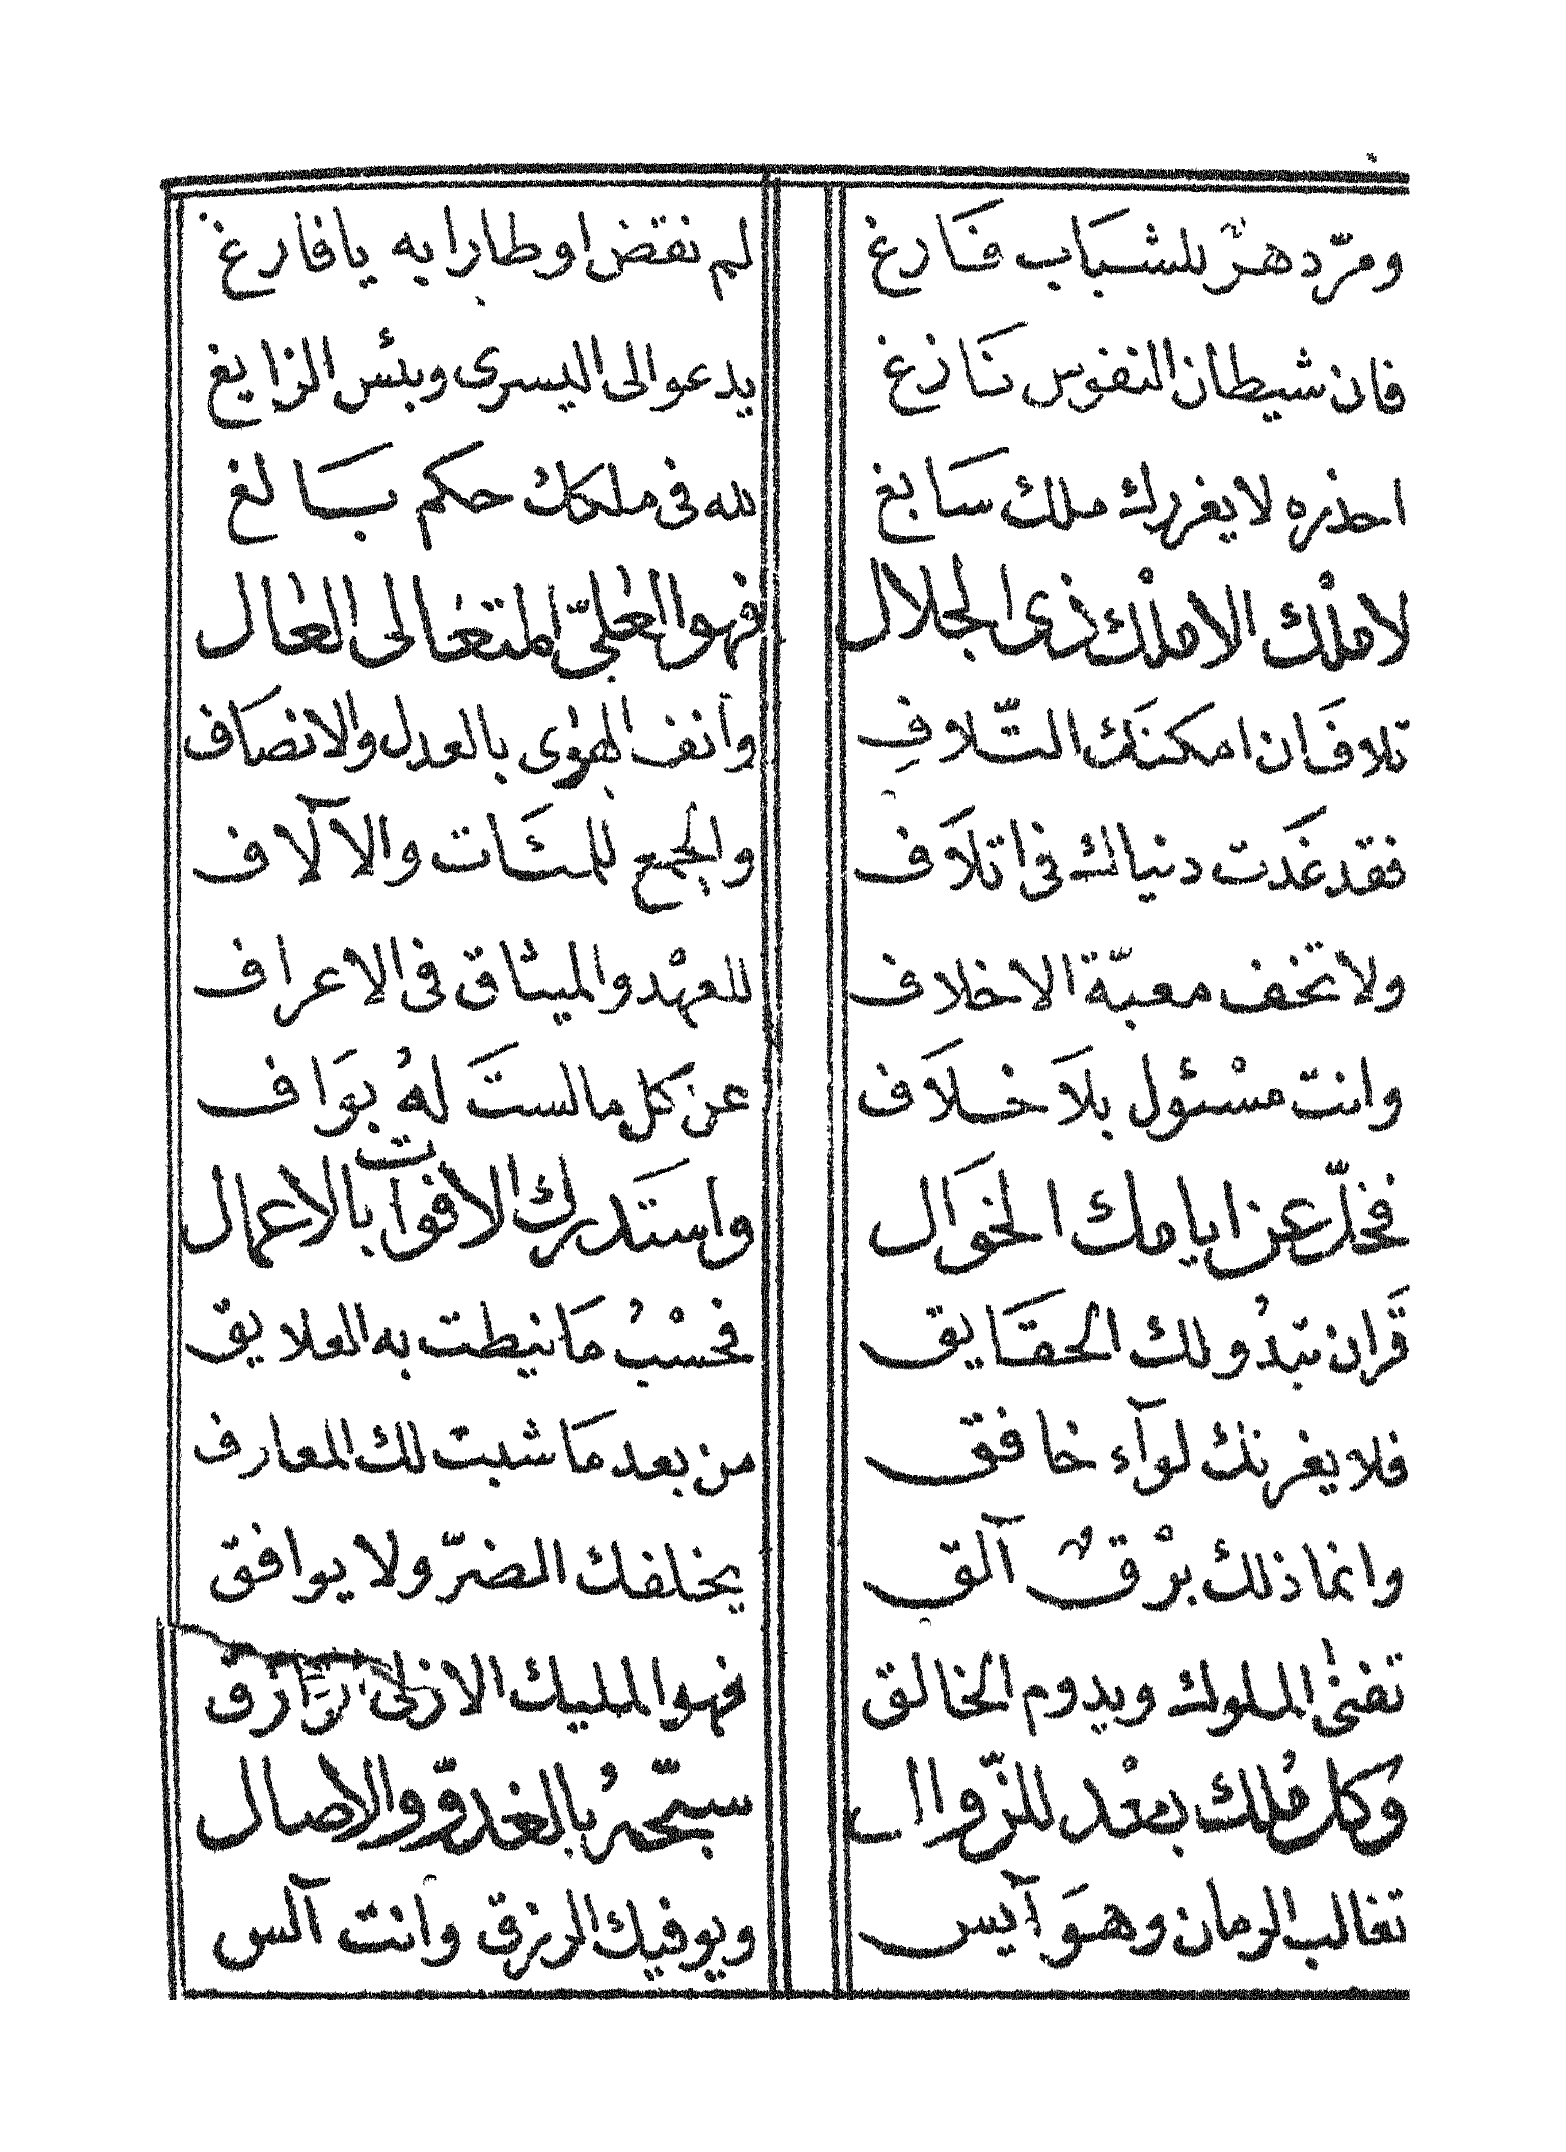 ومرّ دهرٌ للشباب فَارغ لم نقض اوطارا به يا فارغ
فان شيطان النفوس نَازغ يدعو الى اليسرى وبئس الزايغ
احذره لا يغررك ملك سَابغ لله فى ملكك حكم بَالغ
لا ملْك الا ملْك ذى الجلال فهو العلىّ المتعالى العال
تلافَ ان امكنَك التّلافِ وانف الهوى بالعدل والانصاف
فقد غَدت دنياك فى اتلَاف والجمع للمئَات والآلاف
ولا تخف معبّة الاخلاف للعهْد والميثاق فى الاعراف
وانت مسْئول بلَا خلَاف عن كل ما لستَ لهُ بوَاف
فخلّ عن ايامك الخوال واستَدرك الافوات بالاعمال
قَران تبْدُو لك الحقَايق فحسْبُ مَا نيطت به العلايق
فلا يغرنك لوآء خافق من بعد مَا شبت لك المعارف
وانما ذلك برْقٌ آلق يخلفك الضرّ ولا يوافق
تفنى الملوك ويدوم الخالق فهو المليك الازلى الرَّازق
وكل مُلك بعْد للزّوال سبّحهُ بالغدوّ والاصال
تغالب الزمان وهوَ آيس ويوفيك الرزق وانت آلس